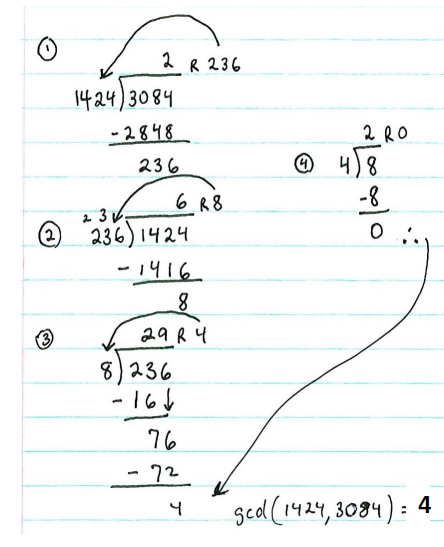 ①
2 R 236
1424)3084
-2848
236
2 3
6 R8
② 236)1424
-1416
8
③
29 R 4
8)236
-16↓
76
-72
4
④
2 R0
4)8
-8
0 ∴
gcd(1424, 3084) = 4